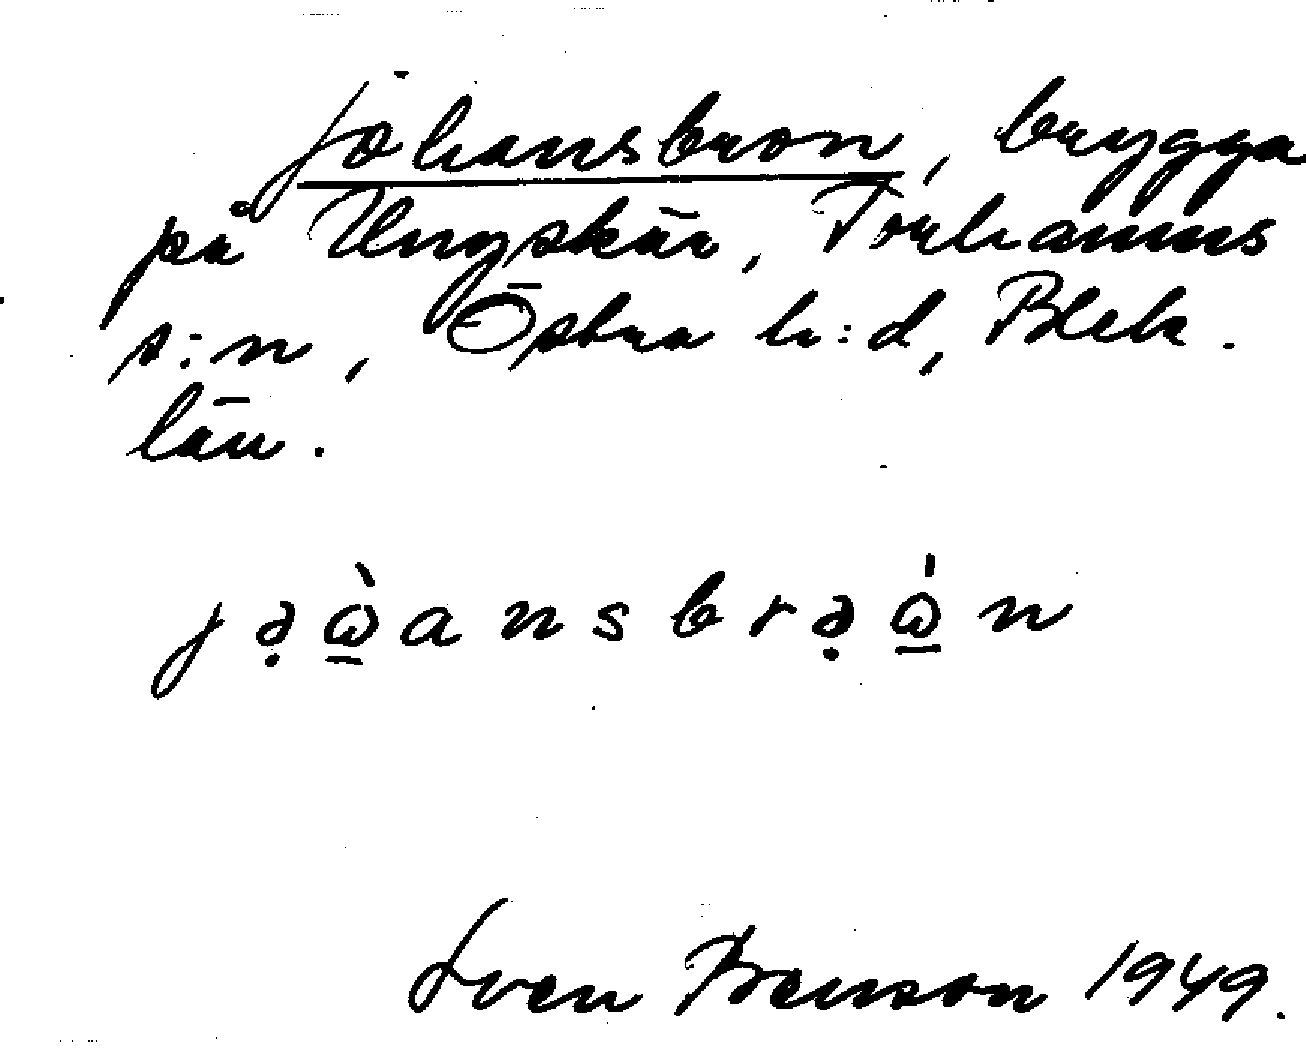 Johansbron, brygga
på Ungskär, Torhamns
s:n, Östra h:d, Blek.
län.
jə̣ὼ̱ansbrə̣ώ̱n
Sven Benson 1949.